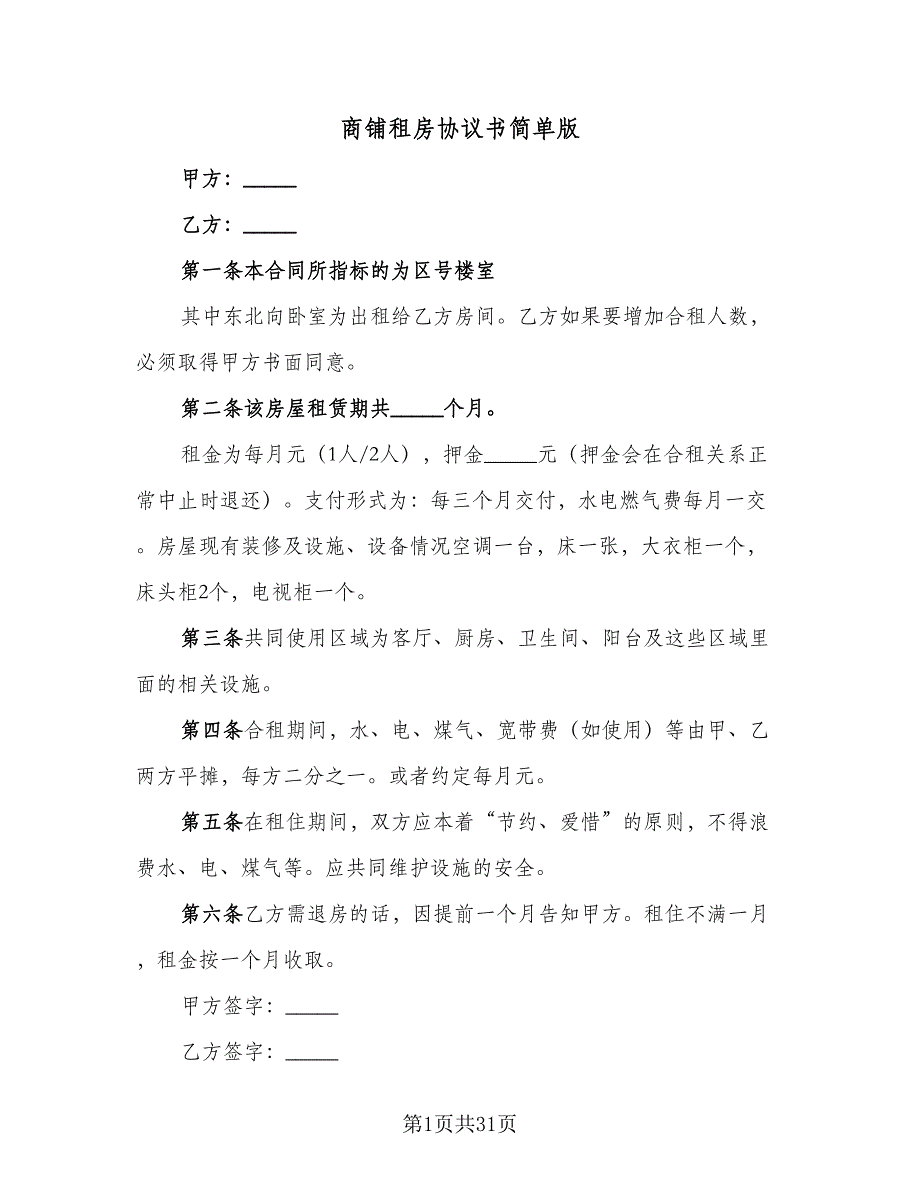 商铺租房协议书简单版
甲方：_____
乙方：_____
第一条本合同所指标的为区号楼室
其中东北向卧室为出租给乙方房间。乙方如果要增加合租人数，
必须取得甲方书面同意。
第二条该房屋租赁期共_____个月。
租金为每月元（1人/2人），押金_____元（押金会在合租关系正
常中止时退还）。支付形式为：每三个月交付，水电燃气费每月一交
。房屋现有装修及设施、设备情况空调一台，床一张，大衣柜一个，
床头柜2个，电视柜一个。
第三条共同使用区域为客厅、厨房、卫生间、阳台及这些区域里
面的相关设施。
第四条合租期间，水、电、煤气、宽带费（如使用）等由甲、乙
两方平摊，每方二分之一。或者约定每月元。
第五条在租住期间，双方应本着“节约、爱惜”的原则，不得浪
费水、电、煤气等。应共同维护设施的安全。
第六条乙方需退房的话，因提前一个月告知甲方。租住不满一月
，租金按一个月收取。
甲方签字：_____
乙方签字：_____
第1页共31页